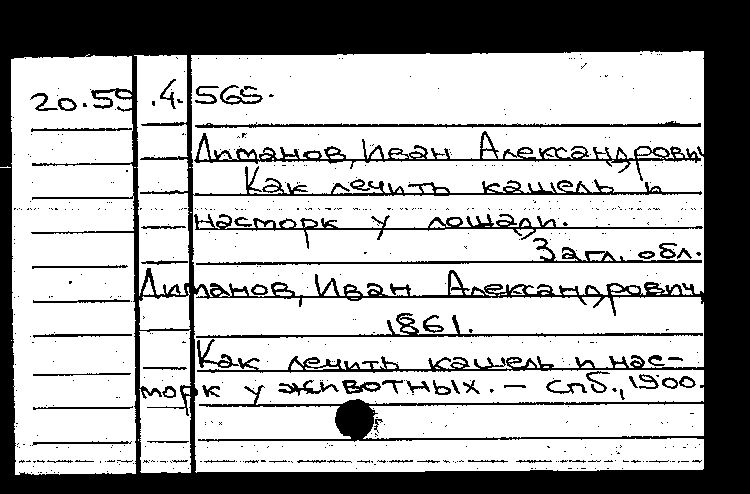 20.59.4.565.
Лиманов, Иван Александрович
Как лечить кашель и
насморк у лошади.
Загл. обл.
Лиманов, Иван Александрович,
1861.
Как лечить кашель и нас-
морк у животных. – спб., 1900.